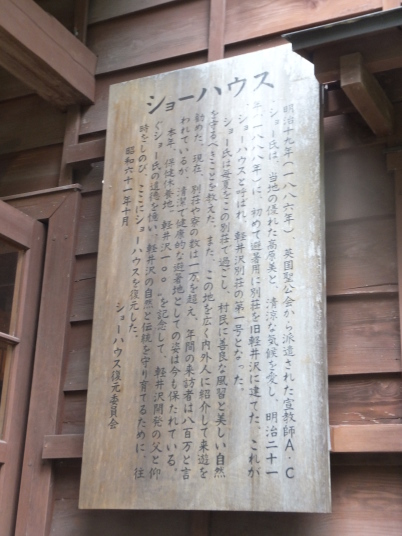 ショーハウス
明治十九年(一八八六年) 英国聖公会から派遣された宣教師A・C
ショー氏は、当地の優れた高原美と、清涼な気候を愛し、明治二十一
年(一八八八年)に、初めて避暑用に別荘を旧軽井沢に建てた。これが
ショーハウスと呼ばれ、軽井沢別荘の第一号となった。
ショー氏は毎夏をこの別荘で過ごし、村民に善良な風習と美しい自然
を守るべきことを教えた。また、この地を広く内外人に紹介して来遊を
勧めた。現在、別荘や寮の数は一万を超え、年間の来訪者は八百万と言
われているが、清潔で健康的な避暑地としての姿は今も保たれている。
本年、保健休養地 軽井沢一〇〇年を記念して、軽井沢開発の父と仰
ぐショー氏の遺徳を偲い、軽井沢の自然と伝統を守り育てるために、往
時をしのび、ここにショーハウスを復元した。
昭和六十一年十月
ショーハウス復元委員会